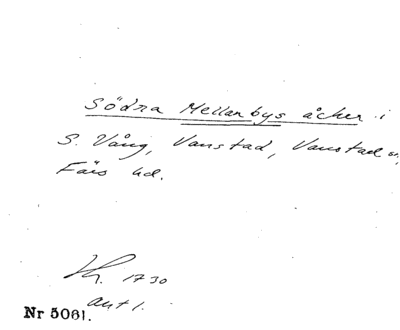 Södra Mellanbys åcker i
S. Vång, Vanstad, Vanstad sn,
Färs hd.
Kh. 1730
akt 1.
Nr 5061.